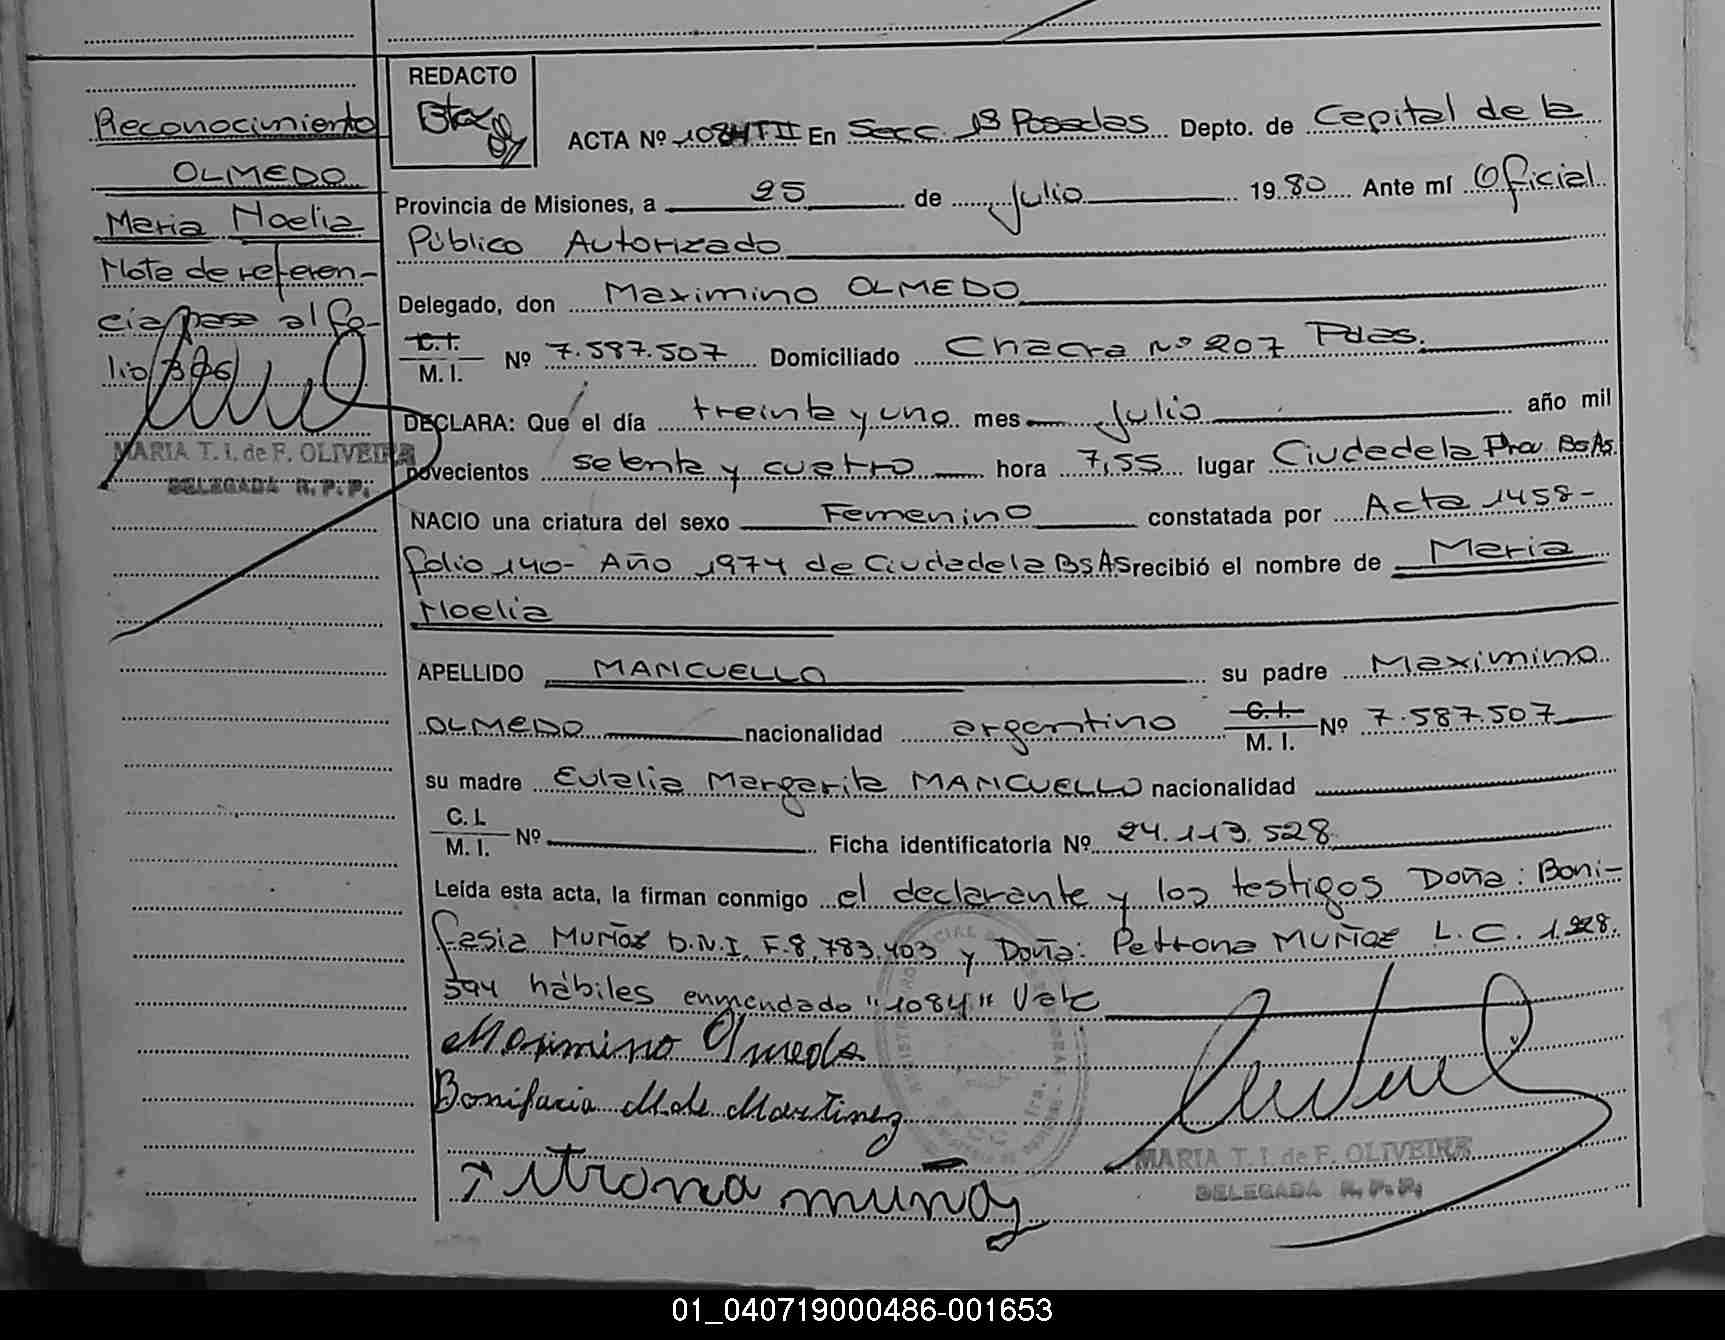 Reconocimiento
OLMEDO
Maria Noelia
Nota de referen-
cia pasa al fo-
lio 396
MARIA T. I. de F. OLIVEIRA
DELEGADA R. P. P.
REDACTO
ACTA Nº 1084 TII En Secc. 1ª Posadas Depto. de Capital de la
Provincia de Misiones, a 25 de Julio 19 80 Ante mí Oficial
Público Autorizado
Delegado, don Maximino OLMEDO
C.I. M. I. Nº 7.587.507 Domiciliado Chacra Nº 207 Pdas.
DECLARA: Que el día treinta y uno mes Julio año mil
novecientos setenta y cuatro hora 7,55 lugar Ciudadela Prov. Bs As.
NACIO una criatura del sexo Femenino constatada por Acta 1458-
folio 140- Año 1974 de Ciudadela Bs As recibió el nombre de Maria
Noelia
APELLIDO MANCUELLO su padre Maximino
OLMEDO nacionalidad argentino C.I. M. I. Nº 7.587.507
su madre Eulalia Margarita MANCUELLO nacionalidad
C. I. M. I. Nº Ficha identificatoria Nº 24.113.528
Leída esta acta, la firman conmigo el declarante y los testigos Doña: Boni-
fasia MUÑOZ D.N.I. F.8,783.403 y Doña: Petrona MUÑOZ L.C. 1.228.
594 hábiles enmendado "1084" Vale
Maximino Olmedo
Bonifacia M. de Martinez
Petrona muñoz
MARIA T. I. de F. OLIVEIRA
DELEGADA R. P. P.
01_040719000486-001653